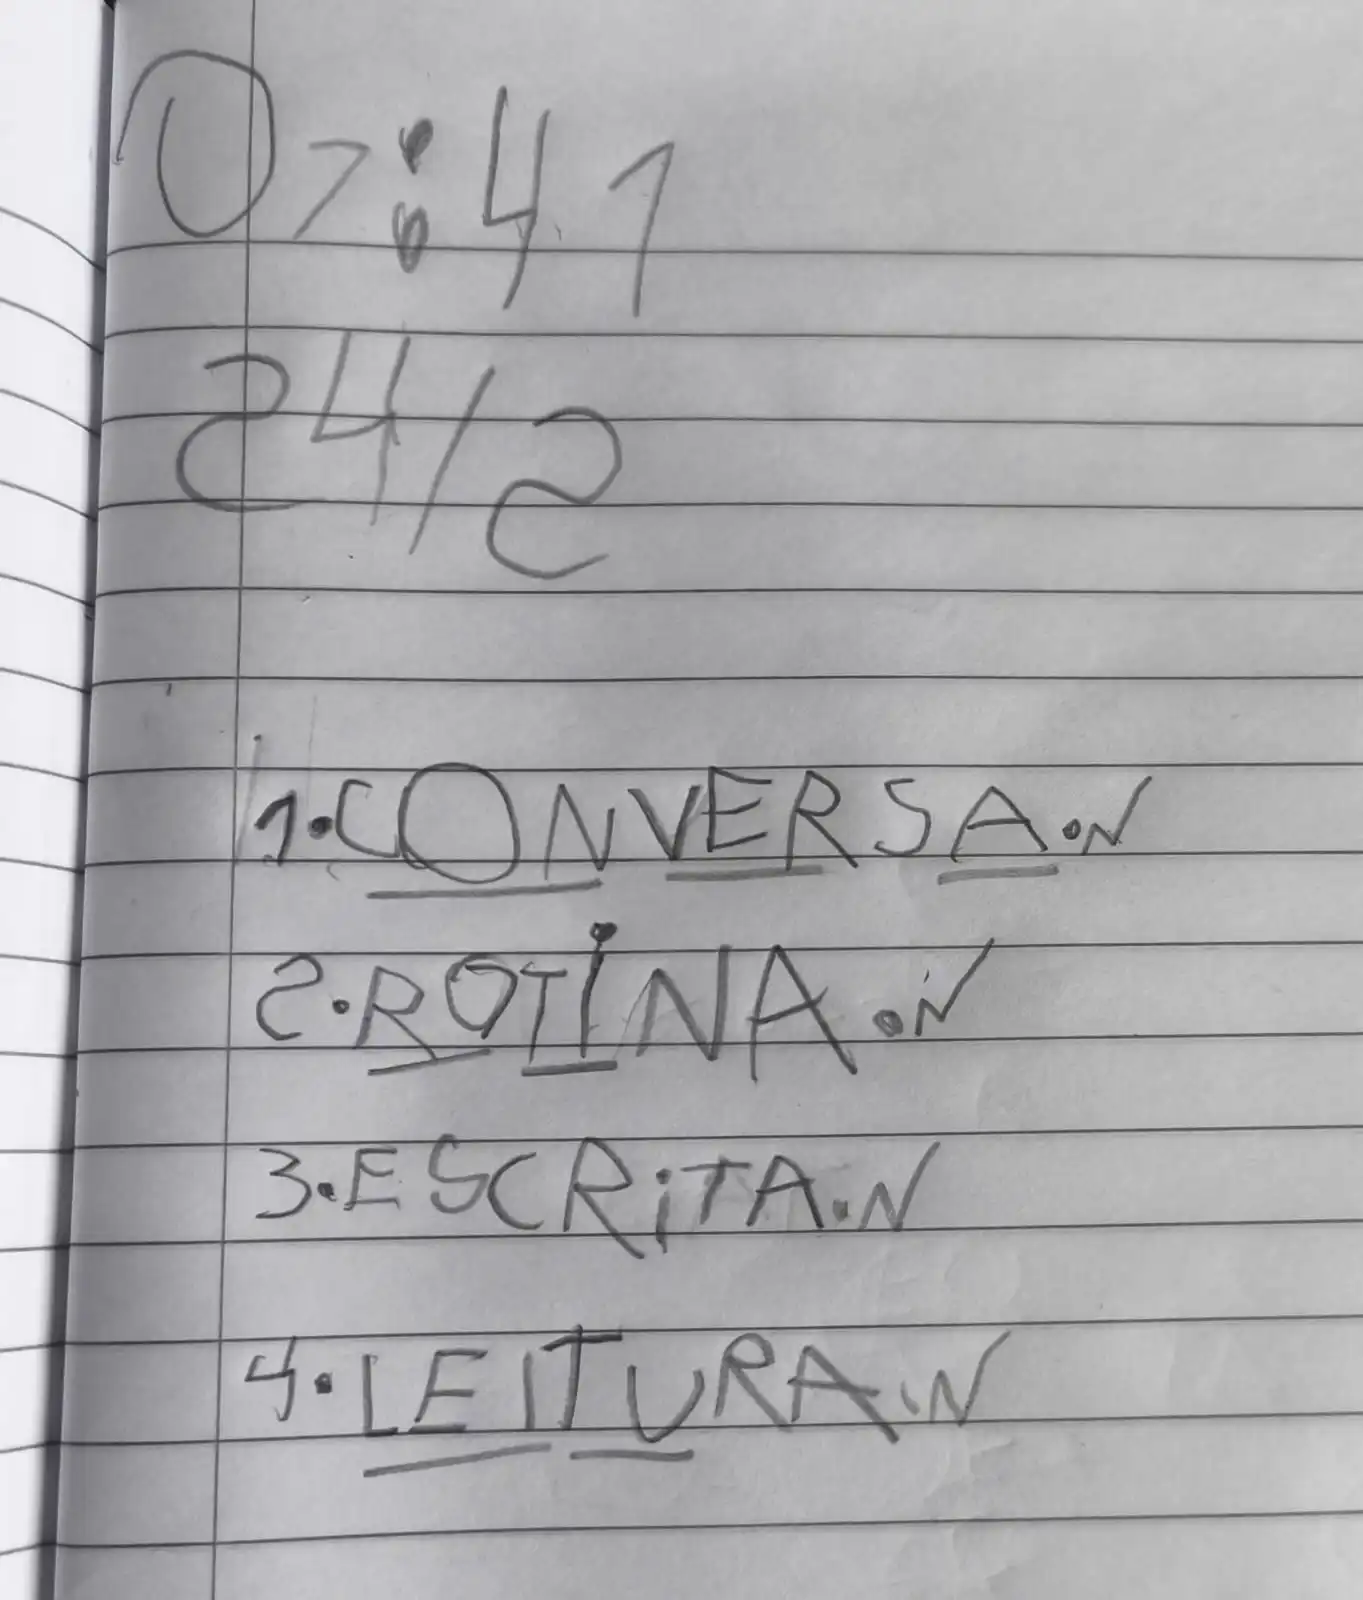 07:41
24/2
1.CONVERSA.N
2.ROTINA.N
3.ESCRiTA.N
4.LEITURA.N